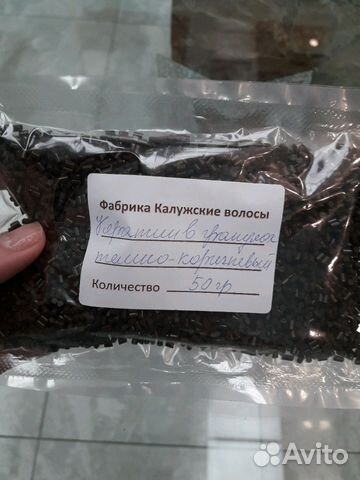 Фабрика Калужские волосы
Кератин в гранулах
темно-коричневый
Количество 50 гр
Avito